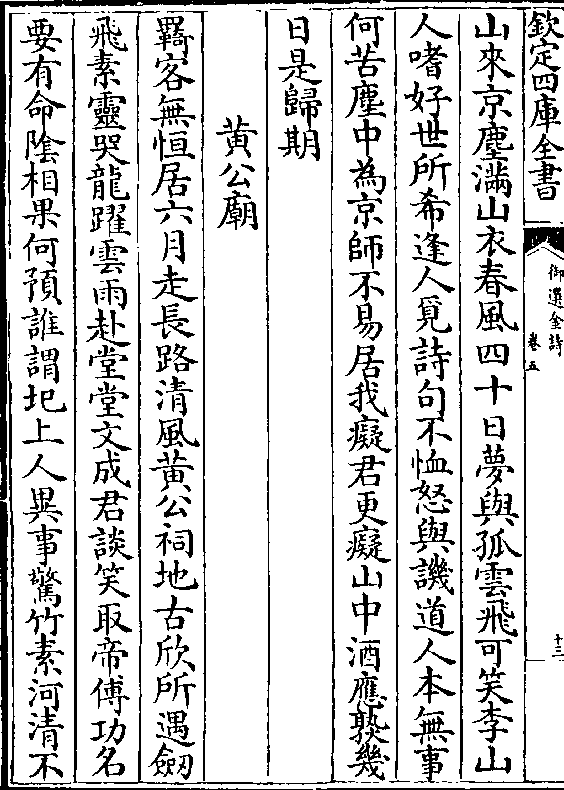 欽定四庫全書
御選金詩
卷五
十三
山來京塵滿山衣春風四十日夢與孤雲飛可笑李山
人嗜好世所希逢人覓詩句不恤怒與譏道人本無事
何苦塵中為京師不易居我癡君更癡山中酒應熟幾
日是歸期
黄公廟
羇客無恒居六月走長路清風黄公祠地古欣所遇劒
飛素靈哭龍躍雲雨赴堂堂文成君談笑取帝傅功名
要有命陰相果何預誰謂圯上人異事驚竹素河清不